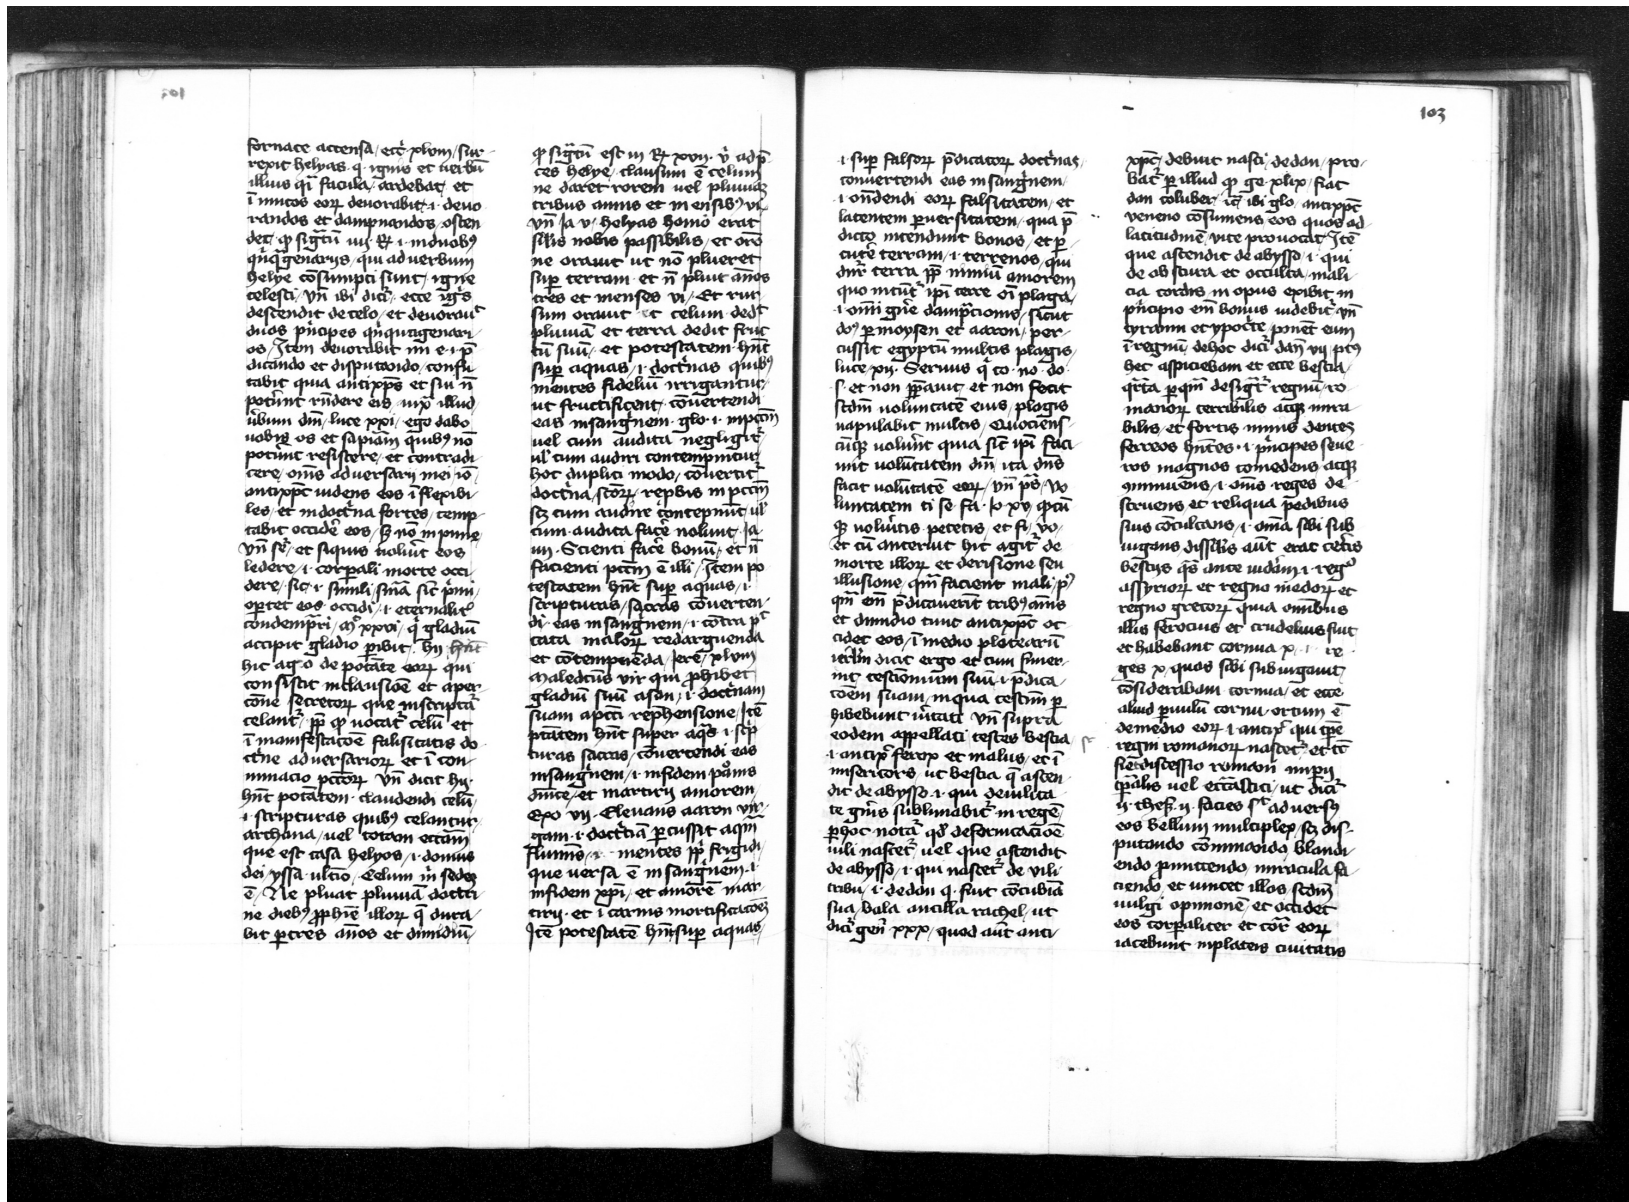 fornace accensa / ecc͛ xlviii / sur-
rexit helyas q̄ ignis et uerbū
illius qr̄ facula / ardebat / et
ī mitos eorꝝ deuorabit / ·i· deuo
randos et dampnandos / osten
det / ꝙ sig̃tū iiii ℞ ·i· induobꝰ
qͥnqͣgenarijs / qui ad verbum
helye cōsumpti sunt / igne
celesti / vn̄ ibi dicͬ / ecce ig̃s
descendit de celo / et deuorauͭ
duos pͥncipes qͥnquagenari-
os / Itēm deuorabit iniᵉ ·i· p̄
dicando et disputando / confu
tabit quia antixp̄s et sui n̄
poterūt rn̄dere eis / iuxͣ illud /
v̉bum dn̄i / luce xxi / ego dabo
uobis os et sapiām quibꝰ nō
poterūt resistere / et contradi
cere / om̄s aduersarij mei / iō
antixp̄c uidens eos īflexibi
les / et indoctͥna fortes / temp-
tabit occidēr eos / sꝫ nō inpune /
vn̄ seͬ / et siquis uoluīt eos
ledere / ·i· corꝑali morte occi
dere / sic ·i· simili / sniā sic̄ pͥmi /
oꝑtet eos occidi / ·i· eternalitͬ
condempnͣri / mͭ xxvi / qͥ gladiū
accipit gladio ꝑibit / hij hn̄t
hic agͦ de potāte eorꝝ qui
consistit inclausiōe et aper-
cōne secretorꝝ que inscriptͣ
celantͬ / ꝓp̄ ꝙ uocatͬ celū / et
ī manifestacōe falsitatis do
ctͥne aduersariorꝝ et ī com
minacio pctorꝝ vn̄ dicit hij
hn̄t potātem claudendi celū /
·i· scripturas quibꝰ celantur /
archana / uel totam eccīam
que est casa helyos / ·i· domus
dei / yssa ultio / Celum im̄ sedes
ē / Ne pluat pluuiā doctri
ne diebꝰ ꝓphīe illorꝝ q̄ dura-
bit ꝑ tres an̄os et dimidiū /
ꝙ sig̃tū est iii ℞ xvii · v̉ ad p̄
ces helye / clausum ē celum
ne daret rorem uel pluuiaꝫ
tribus annis et mensibꝰ vi
vn̄ Ia v / helyas homo erat
silis nobis passibilis / et orō
ne orauit ut nō plueret
suꝑ terram / et n̄ pluit an̄os
tres et menses vi / Et rur
sum orauit et celum dedͭ
pluuiā et terra dedit fruc
tū suū / et potestatem hn̄t
suꝑ aquas / ·i· doctͥnas quibꝰ
mentes fideliū irrigantur /
ut fructificent / conuertendi
eas insangͥnem / glo ·i· inpctm̄
uel cum audita negligitͬ /
ul̉ cum audiri contempnitur /
hoc duplici modo / conuertitͬ
doctͥna / sc̄orꝝ / reprobis in pctm̄
scꝫ cum audire contepnūt / ul̉
cum audita facēr nolunt / Ia
iiii / Scienti facēr bonū / et n̄
facienti pctm̄ ē illi / Item po
testatem hn̄t suꝑ aquas / ·i·
scripturas / sacras conuerten-
di eas insangnem / ·i· cōtra pͨ
cata malorꝝ redarguenda
et contempnēda / Jere͛ xlviii
Maledictus vir qui ꝓhibet
gladiū suū asan / ·i· doctͥnam
suam apctī rep̄hensione / Itē
ptātem hn̄t super aqͣs / ·i· scͥp
turas sacras / conuertendi eas
insangͥnem / ·i· infidem pāoīs
dūīce / et martirij amorem /
Exo vij / Eleuans aaron vir-
gam / ·i· doctͥīa ꝑcussit aqm̄
fluminis / ·i· mentes ꝓpͥ frigidi /
que versa ē insangͥnem / ·i·
infidem xpī / et amorem mar
tirij / et ī carnis mortificacōeꝫ
Itē potestatē hn̄t suꝑ aquas /
·i· suꝑ falsorꝝ p̄dicatorꝝ doctͥnas /
conuertendi eas insangͥnem /
·i· on̄dendi eorꝝ falsitatem / et
latentem ꝑuersitatem / qua p̄
dicto intendunt bonos / et ꝑ
cutēr terram / ·i· terrenos / qui
dn̄r terra ꝓp̄ nimiū amorem
quo incūtͬ ipī terre oī plaga /
·i· om̄i gn̄re damp̄cionis / sicut
dōs ꝑ moysen et aaron / per-
cussit egyptū multis plagis /
luce xij / Seruus qͥ co · no · do
·s· et non p̄ꝑauit / et non fecit
scdm̄ uoluntatē eius / plagis
uapulabit multis / Quociens-
cūqꝫ uoluīt quia sic̄ ipī faci
unt uolūtatem dn̄i / ita dn̄s
facit uolūtatē eorꝝ / vn̄ pˢ / Vo
luntatem ti se fa / Jo xv / qdcū
qꝫ voluītis petetis / et fi · vo /
et cū anteriut hic agitͬ de
morte illorꝝ et derisione seu
illusione / qm̄ facient mali / pͣ
qm̄ em̄ p̄dicauerīt tribꝰ annis
et dimidio tunc antixp̄c oc
cidet eos / ī medio platearū
ierlm̄ dicit ergo et cum finier-
int testimonium suū / ·i· p̄dica
cōem suam / inqua testim̄ ꝑ
hibebunt iūtati vn̄ supra
eodem appellati testes bestia /
·i· antixp̉ ferox et malus / et ī
misericors / ut bestia q̄ ascen-
dit de abysso ·i· qui deuilita
te gn̄is sublimabitͬ in regē
ꝑ hoc notaͬ qd̉ deformicacōe
iuili nascetͬ uel que ascendit
de abysso / ·i· qui nascetͬ de vili
tribu / ·i· dedan q̄ fuit cōcubīa
sua / bala ancilla rachel / ut
dicͬ gen̄ xxx / quod aūt anti
xp̄c / debuit nasci / de dan / pro-
batͬ ꝑ illud ꝙ ge xlix / fiat
dan coluber / ic̄ ibi glo / antixp̄c
veneno cōsumens eos quos ad
latitudinē / uite prouocat / Itē
que ascendit de abysso / ·i· qui
de obscura et occulta / mali
cia cordis in opus exibit in
pͥncipio em̄ bonus uidebitͬ vn̄
tyranni et ypocͥte ponēt eum
ī regnū / de hoc dicͬ dan̄ vij ptͦs
hec aspiciebam et ecce bestia /
qͬta ꝑ qm̄ desigͬ regnū / ro-
manorꝝ terribilis atqꝫ mira
bilis / et fortis nimis dentes
ferreos hn̄tes / ·i· pͥncipes seue
ros magnos comedens atqꝫ
cōminuens / ·i· om̄s reges de
struens et reliqua pedibus
suis cōculcans / ·i· om̄ia sibi sub
iugans dissilīs aūt erat cetͥis
bestijs qͣs ante uidām / ·i· regͦ
assyriorꝝ et regno medorꝝ et
regno grecorꝝ quia omnibus
illis ferocius et crudelius fuit
et habebant cornua x / ·i· re
ges x / quos sibi subiugauit
cōsiderabam cornua / et ecce
aliud ꝑuulū cornu ortum ē
de medio eorꝝ ·i· antixp̉ qui tpē
regni romanorꝝ nascetͬ et tc̄
fiet discessio romani impij
tꝑalis uel ecc̄īastici / ut dicͬ
ij thes ij / facies sͭ aduersꝰ
eos bellum multiplex / scꝫ dis-
putando cōminando blandi-
endo promittendo / miracula fa
ciendo / et uincet illos / scdm̄
uulgi opinionē / et occidet
eos corꝑaliter et corͣ eorꝝ
iacebunt inplateis ciuitatis
103